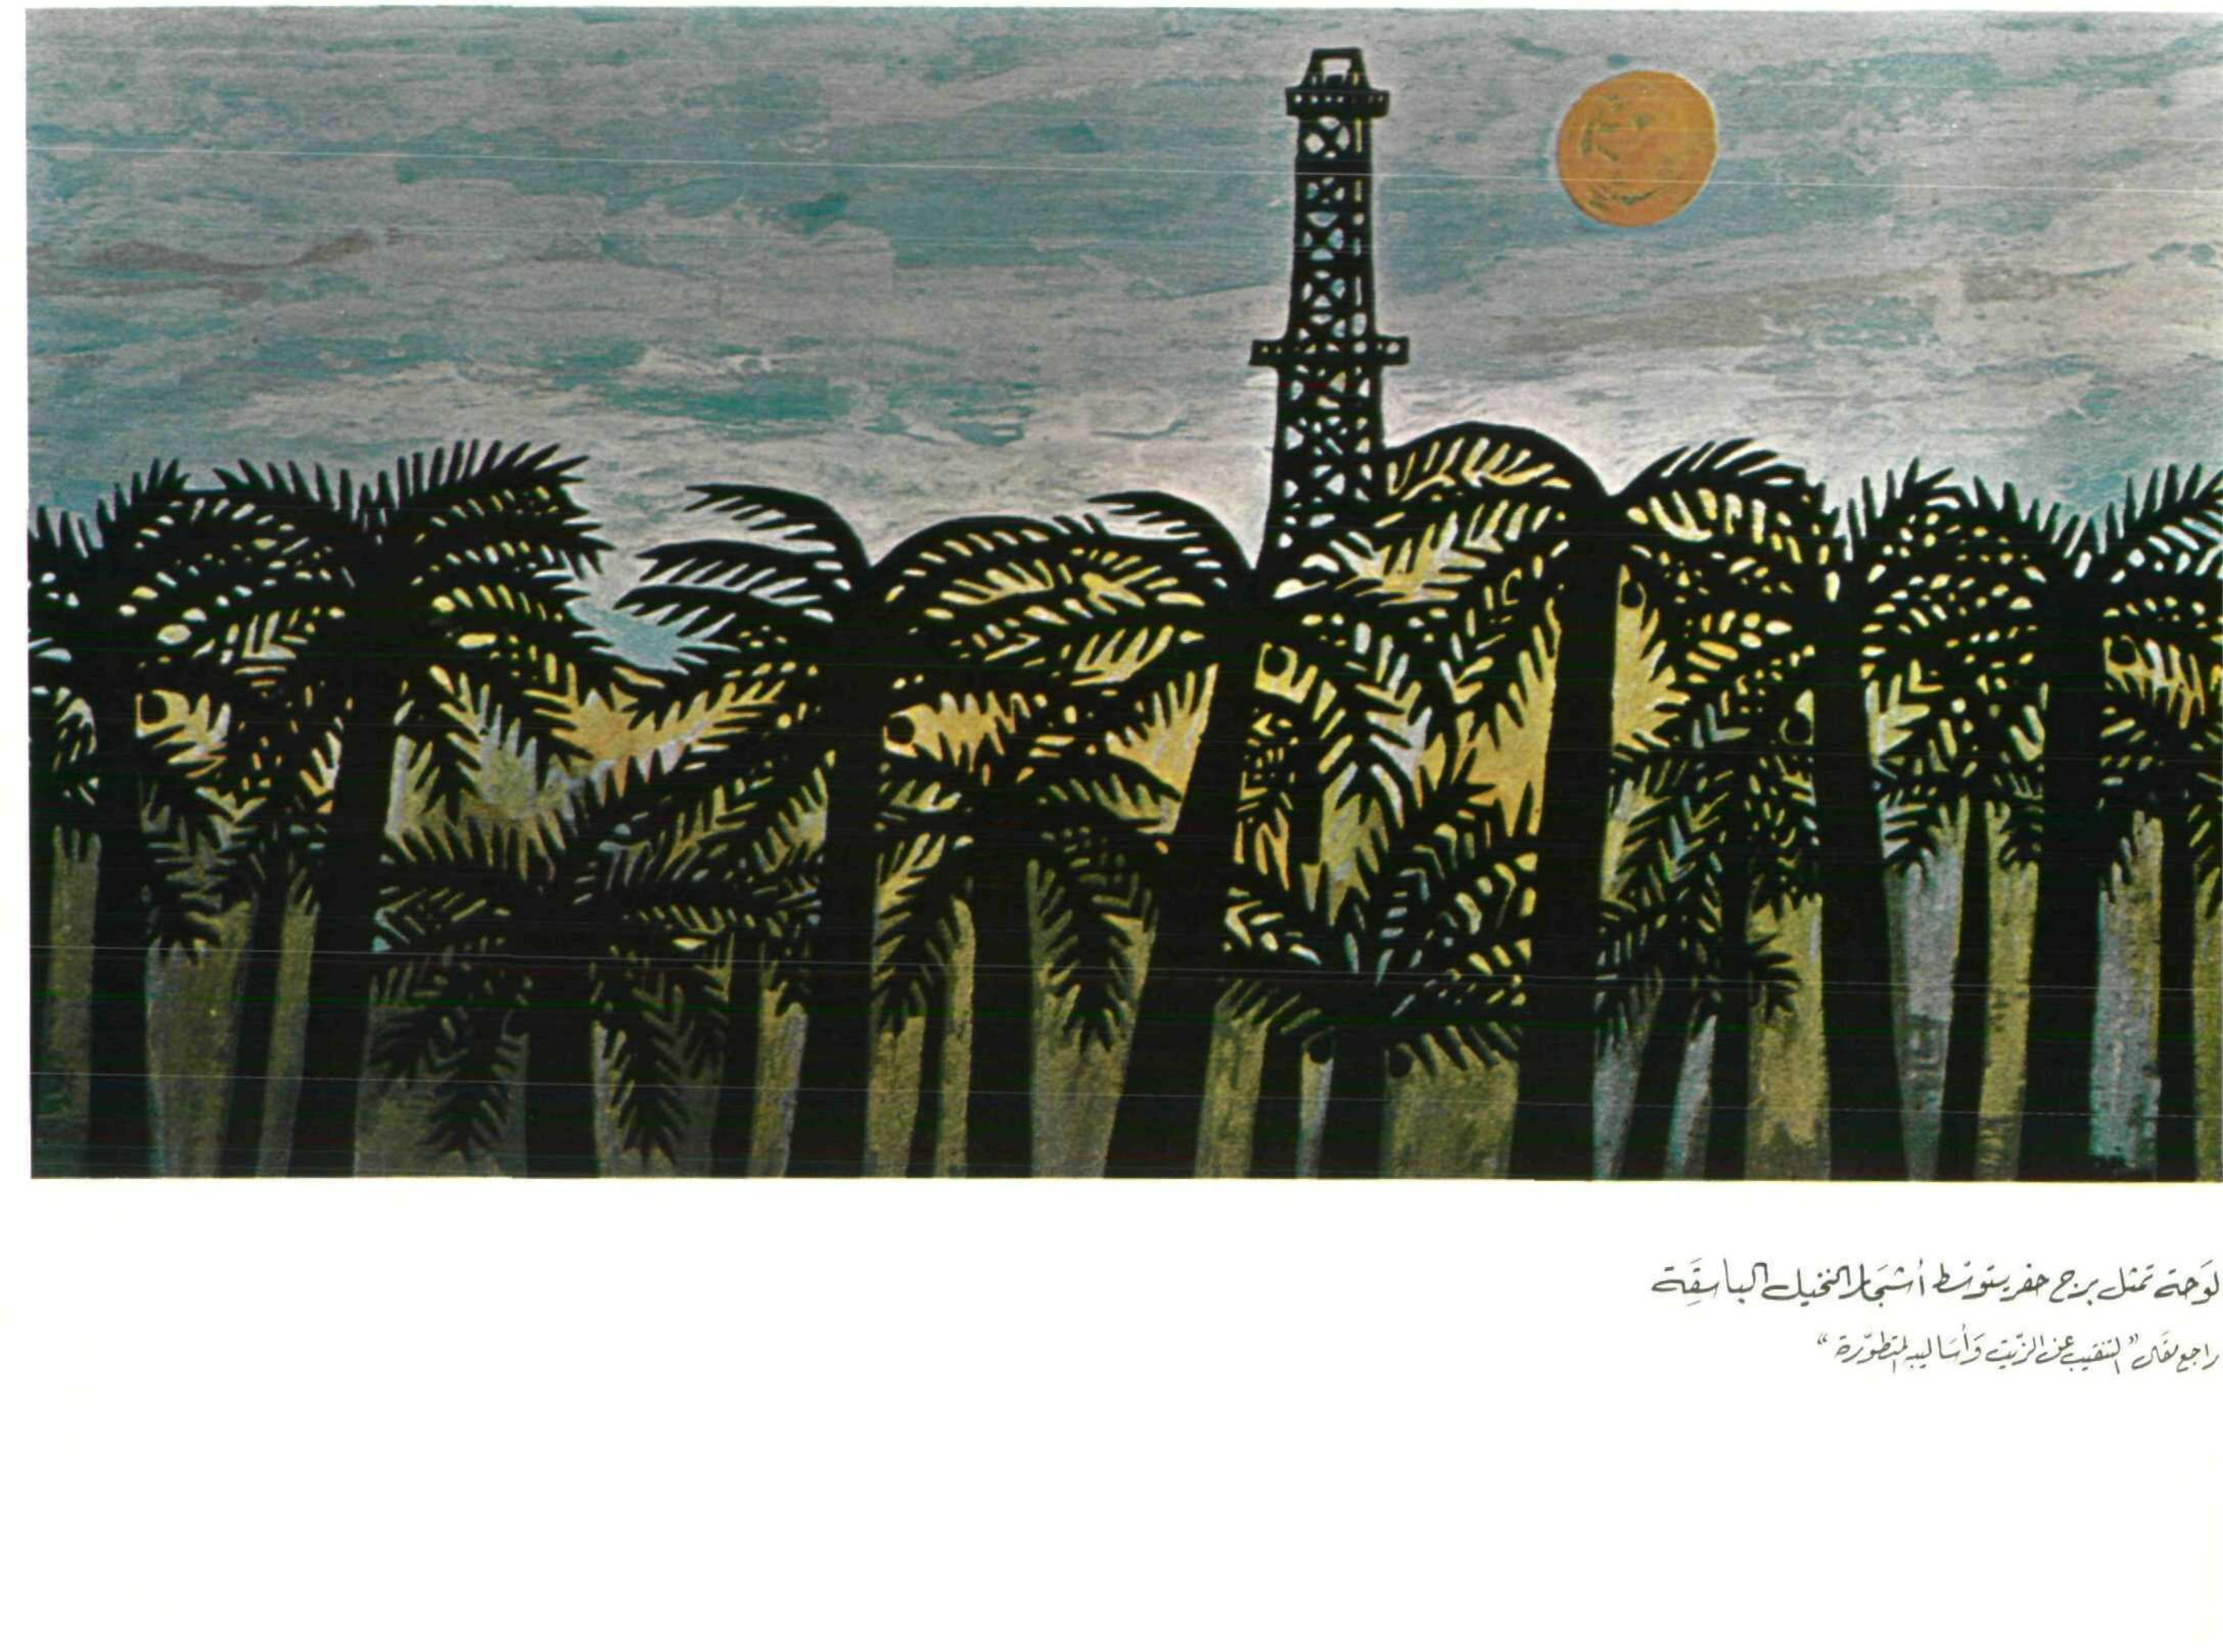 لوَحة تمثل برج حفر يتوسّط أشجَار النخيل الباسقَِة
راجع مقَال "التنقيب عن الزّيت وَأسَاليبه المتطوّرة"